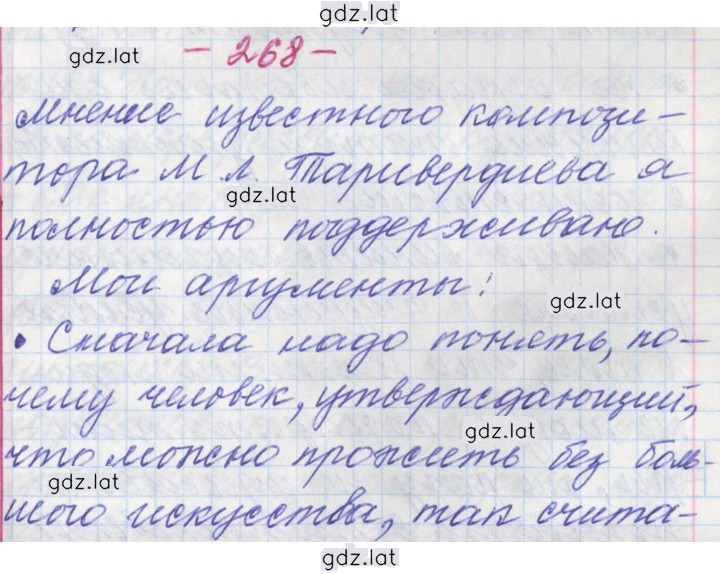 gdz.lat
gdz.lat
- 268 -
Мнение известного компози-
тора М. Л. Таривердиева я
gdz.lat
полностью поддерживаю.
Мои аргументы:
gdz.lat
• Сначала надо понять, по-
чему человек, утверждающий,
gdz.lat
что можно прожить без боль-
gdz.lat
шого искусства, так счита-
gdz.lat